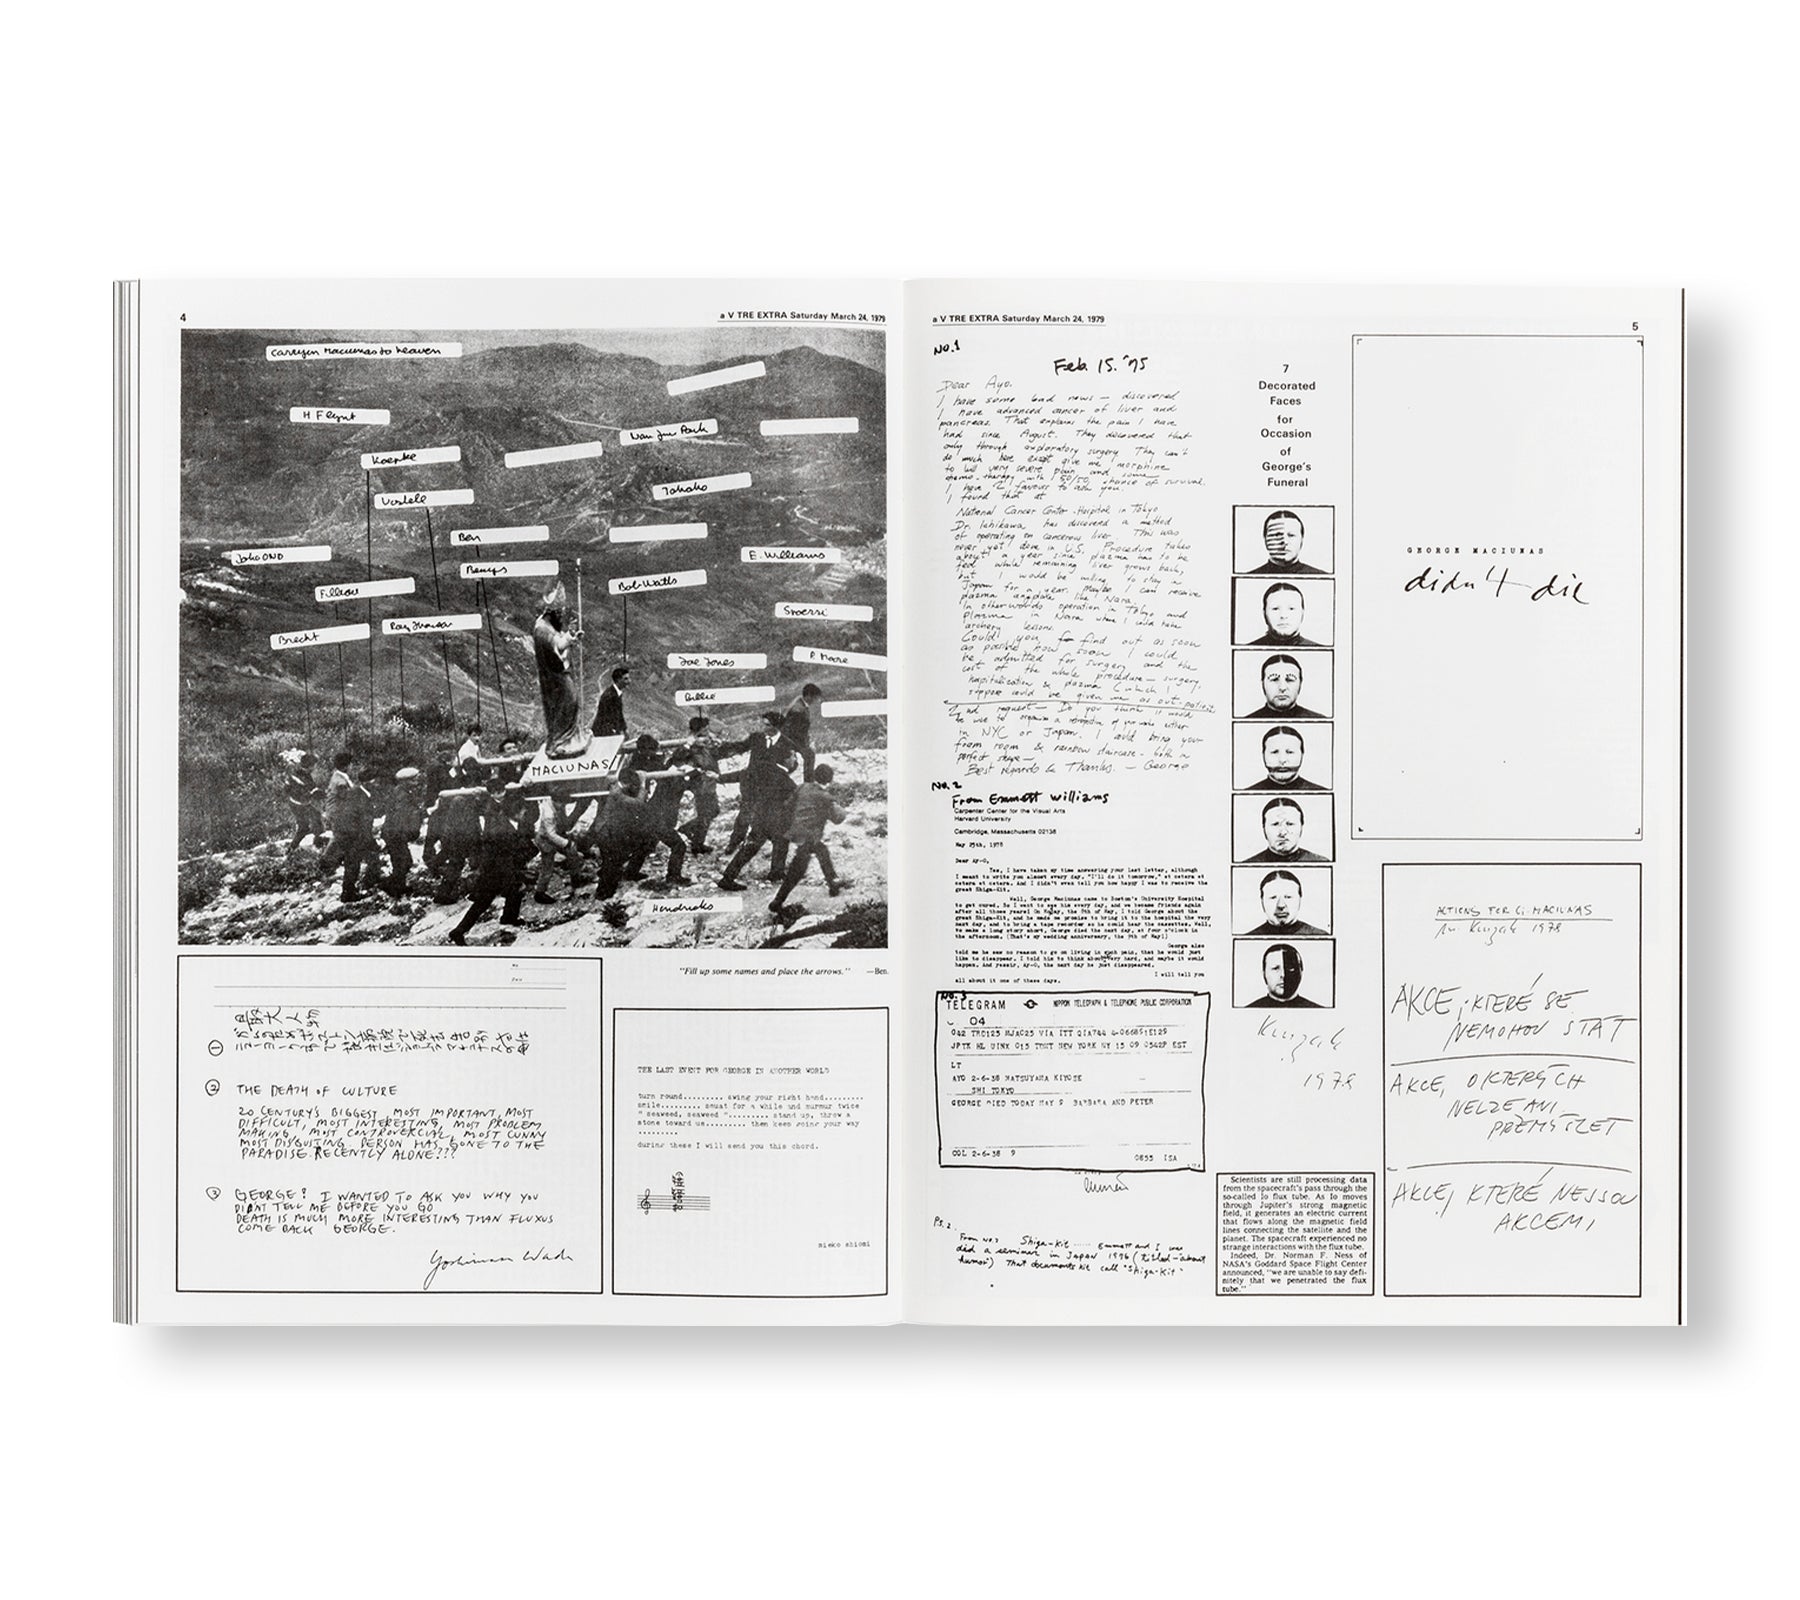 4
a V TRE EXTRA Saturday March 24, 1979
Carryin Maciunas to heaven
H Flynt
Nam Jun Paik
Koepke
Vostell
Takako
Ben
John ONO
E. Williams
Beuys
Bob Watts
Filliou
Spoerri
Brecht
Ray Johnson
Joe Jones
P. Moore
Billie
MACIUNAS
Hendricks
"Fill up some names and place the arrows." —Ben.
①
② THE DEATH OF CULTURE
20 CENTURY'S BIGGEST, MOST IMPORTANT, MOST
DIFFICULT, MOST INTERESTING, MOST PROBLEM
MAKING, MOST CONTROVERCIAL, MOST CUNNY
MOST DISGUSTING PERSON HAS GONE TO THE
PARADISE RECENTLY ALONE???
③ GEORGE! I WANTED TO ASK YOU WHY YOU
DIDNT TELL ME BEFORE YOU GO
DEATH IS MUCH MORE INTERESTING THAN FLUXUS
COME BACK GEORGE.
Yoshimasa Wada
THE LAST EVENT FOR GEORGE IN ANOTHER WORLD
turn round......... swing your right hand.........
smile......... squat for a while and murmur twice
" seaweed, seaweed "......... stand up, throw a
stone toward us......... then keep going your way
.........
during these I will send you this chord.
mieko shiomi
a V TRE EXTRA Saturday March 24, 1979
5
No.1
Feb. 15. '75
Dear Ayo.
I have some bad news — discovered
I have advanced cancer of liver and
pancreas. That explains the pain I have
had since August. They discovered that
only through exploratory surgery. They can't
do much here except give me morphine
to kill very severe pain and some
chemo-therapy with 50/50 chance of survival.
I have 2 favours to ask you.
I found that at
National Cancer Center Hospital in Tokyo
Dr. Ishikawa has discovered a method
of operating on cancerous liver. This was
never yet done in U.S. Procedure takes
about a year since plazma has to be
fed while remaining liver grows back,
but I would be willing to stay in
Japan for a year. Maybe I can receive
plazma anyplace like Nara
In other words operation in Tokyo and
Plazma in Nara where I could take
archery lessons.
Could you find out as soon
as possible how soon I could
be admitted for surgery and the
cost of the whole procedure — surgery,
hospitalization & plazma (which I
suppose could be given me as out-patient
2nd request — Do you think it would
be use to organize a retrospective of your works either
in NYC or Japan. I could bring your
foam room & rainbow staircase - both in
perfect shape —
Best regards & Thanks. — George
No.2
From Emmett Williams
Carpenter Center for the Visual Arts
Harvard University
Cambridge, Massachusetts 02138
May 25th, 1978
Dear Ay-O,
Yes, I have taken my time answering your last letter, although
I meant to write you almost every day. "I'll do it tomorrow," et cetera et
cetera et cetera. And I didn't even tell you how happy I was to receive the
great Shiga-Kit.
Well, George Maciunas came to Boston's University Hospital
to get cured. So I went to see him every day, and we became friends again
after all those years! On Monday, the 8th of May, I told George about the
great Shiga-Kit, and he made me promise to bring it to the hospital the very
next day, and to bring a tape recorder so he could hear the cassettes. Well,
to make a long story short, George died the next day, at four o'clock in
the afternoon. (That's my wedding anniversary, the 9th of May!)
George also
told me he saw no reason to go on living in such pain, that he would just
like to disappear. I told him to think about very hard, and maybe it would
happen. And yessir, Ay-O, the next day he just disappeared.
I will tell you
all about it one of these days.
No.3
TELEGRAM NIPPON TELEGRAPH & TELEPHONE PUBLIC CORPORATION
04
JPTK HL UINK 015 TDNT NEW YORK NY 15 09 0542P EST
LT
AYO 2-6-38 MATSUYAMA KIYOSE
SHI TOKYO
GEORGE DIED TODAY MAY 9 BARBARA AND PETER
COL 2-6-38 9
0855 ISA
P.S. 2.
From No.2 Shiga-Kit ...... Emmett and I was
did a seminar in JAPAN 1976 (titled - about
humor) That documents kit call "Shiga-Kit"
7
Decorated
Faces
for
Occasion
of
George's
Funeral
Knizak
1978
Scientists are still processing data
from the spacecraft's pass through the
so-called Io flux tube. As Io moves
through Jupiter's strong magnetic
field, it generates an electric current
that flows along the magnetic field
lines connecting the satellite and the
planet. The spacecraft experienced no
strange interactions with the flux tube.
Indeed, Dr. Norman F. Ness of
NASA's Goddard Space Flight Center
announced, "we are unable to say defi-
nitely that we penetrated the flux
tube."
GEORGE MACIUNAS
didn't die
ACTIONS FOR G. MACIUNAS
M. Knizak 1978
AKCE, KTERÉ SE
NEMOHOU STÁT
AKCE, O KTERÝCH
NELZE ANI
PŘEMÝŠLET
AKCE, KTERÉ NEJSOU
AKCEMI